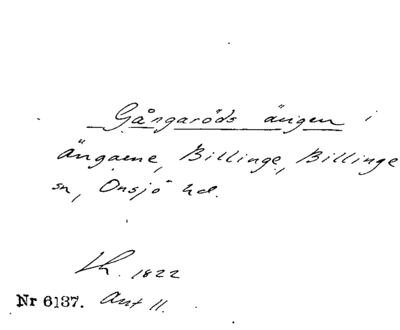 Gångaröds ängen i
ängarne, Billinge, Billinge
sn, Onsjö hd.
Lh. 1822
Nr 6137. Akt 11.